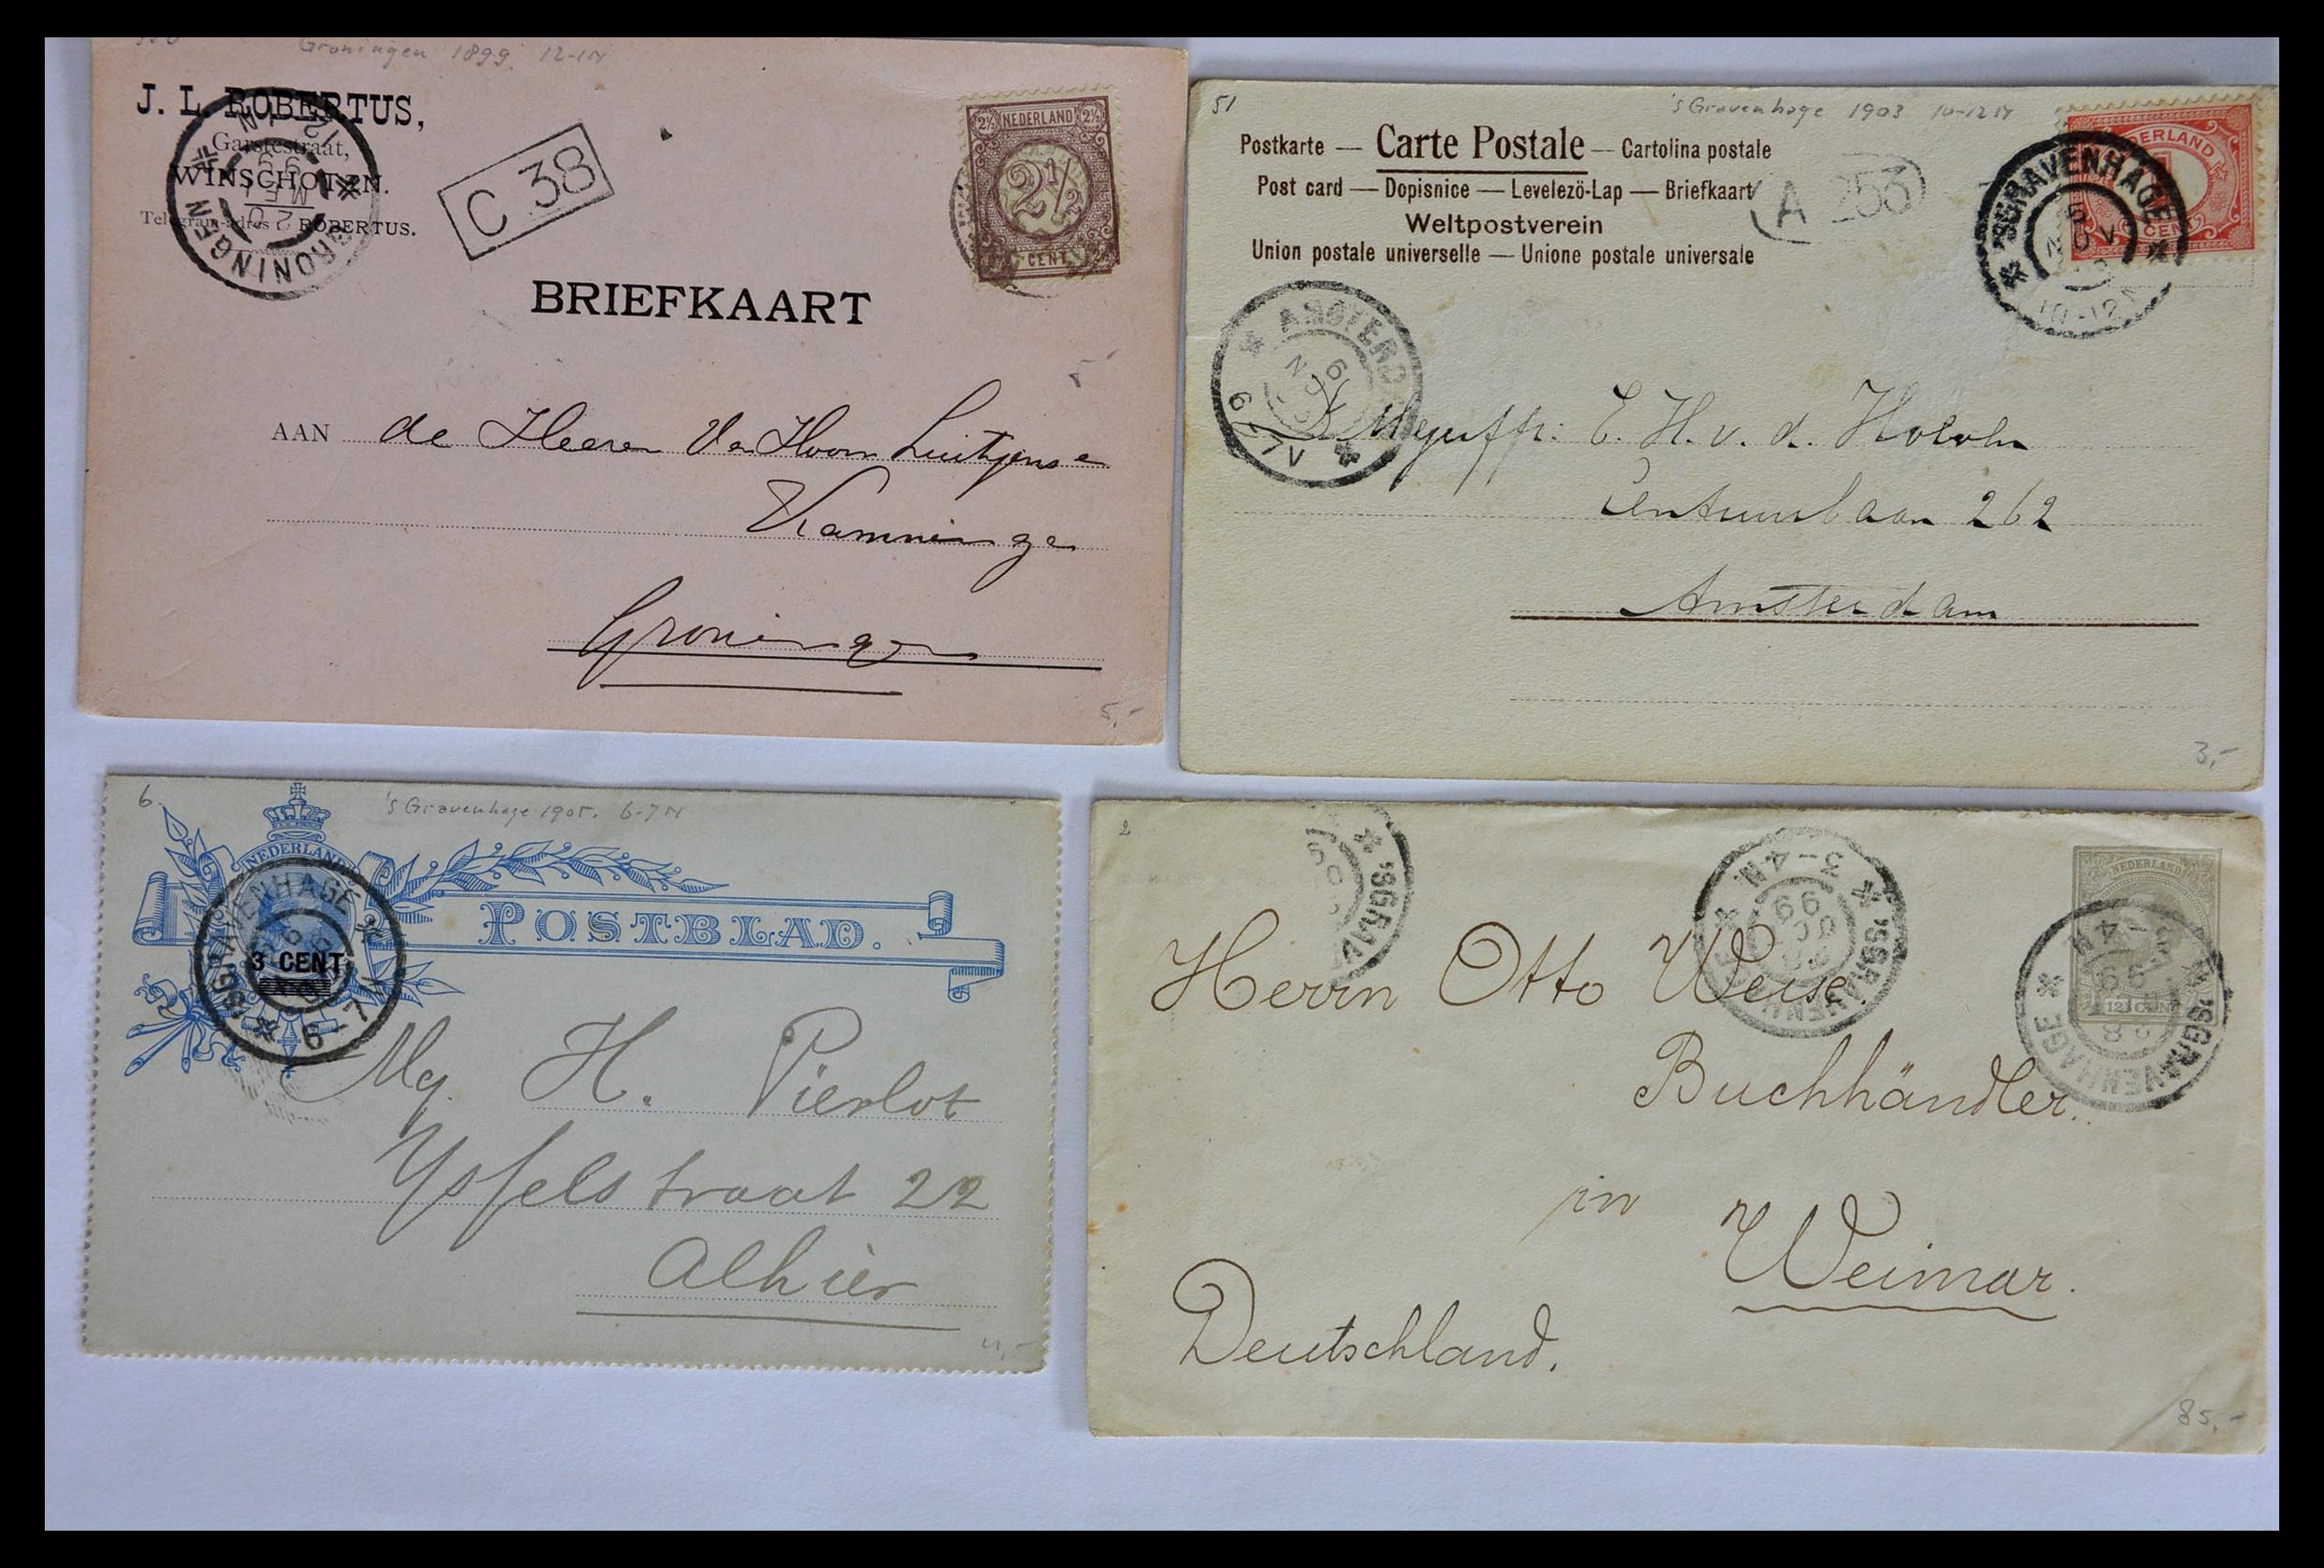 Groningen 1899. 12-1N
J. L. ROBERTUS,
Garstestraat,
WINSCHOTEN.
Telegram-adres: ROBERTUS.
GRONINGEN
12-1N
20
MEI
99
C 38
NEDERLAND
2½ 2½
2½
CENT
BRIEFKAART
AAN de Heeren Van Hoorn Luitjens en
Kamminga
Groningen
5,-
51
's Gravenhage 1903 10-12N
Postkarte — Carte Postale — Cartolina postale
Post card — Dopisnice — Levelezö-Lap — Briefkaart
Weltpostverein
Union postale universelle — Unione postale universale
A 253
NEDERLAND
CENT
'SGRAVENHAGE
5
NOV
10-12N
AMSTERD
6
NO
6-7V
Mejuffr: E. H. v. d.
Ceintuurbaan 262
Amsterdam
3,-
6.
's Gravenhage 1905. 6-7N
NEDERLAND
POSTBLAD.
'SGRAVENHAGE
6-7N
3 CENT
Mej. H. Pierlot
Ysselstraat 22
Alhier
4,-
2
'SGRAV
3-4N
'SGRAVENHAGE
99
NEDERLAND
12½ CENT
3-4N
99
'SGRAVENHAGE
Herrn Otto Weise.
Buchhändler.
in
Weimar.
Deutschland.
85,-